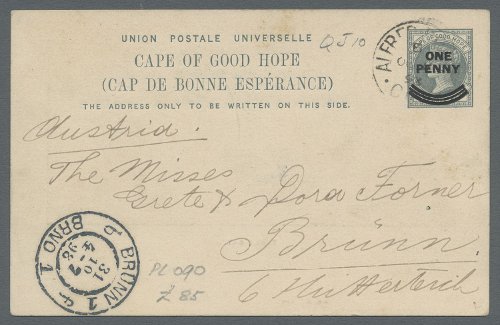 UNION POSTALE UNIVERSELLE
CAPE OF GOOD HOPE
(CAP DE BONNE ESPÉRANCE)
THE ADDRESS ONLY TO BE WRITTEN ON THIS SIDE.
QJ10
ALFRED
ONE
PENNY
Austria.
The Misses
Grete & Dora Forner
Brünn
6
BRÜNN 1
BRNO 1
31
10
98
PL090
Z 85